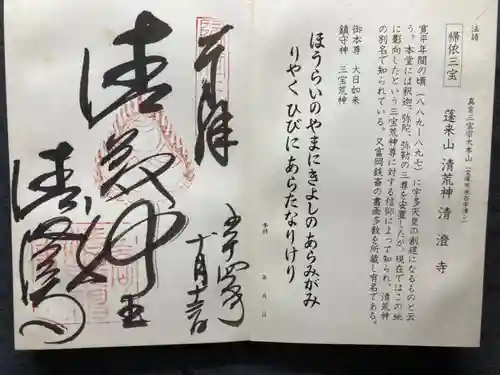 法話
帰依三宝
真言三宝宗大本山
蓬来山 清荒神 清澄寺
寛平年間の頃(八八九-八九七)に宇多天皇の創建になるものと云
う。本堂には釈迦、弥陀、弥勒の三尊を安置したが、現在ではこの地
に影向したという三宝荒神尊に対する信仰によって知られ、清荒神
の別名で知られている。又富岡鉄斎の書画多数を所蔵し有名である。
御本尊 大日如来
鎮守神 三宝荒神
ほうらいのやまにきよしのあらみがみ
りやく ひびに あらたなりけり
年 月 日
奉拝
清荒神王
清澄寺